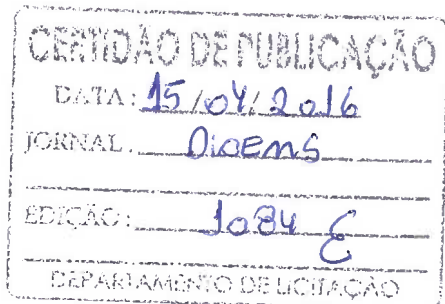 CERTIDÃO DE PUBLICAÇÃO
DATA: 15/04/2016
JORNAL: Dioems
EDIÇÃO: 1084
DEPARTAMENTO DE LICITAÇÃO